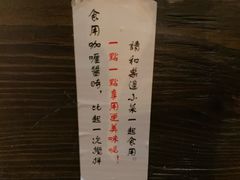 請和樂溫小菜一起食用。
食用咖喱醬時，比起一次攪拌
一點一點享用更美味呢！